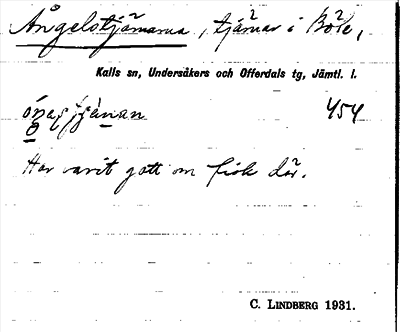 Ångelstjärnarna, tjärnar i Böle,
Kalls sn, Undersåkers och Offerdals tg, Jämtl. l.
454
Har varit gott om fisk där.
C. LINDBERG 1931.